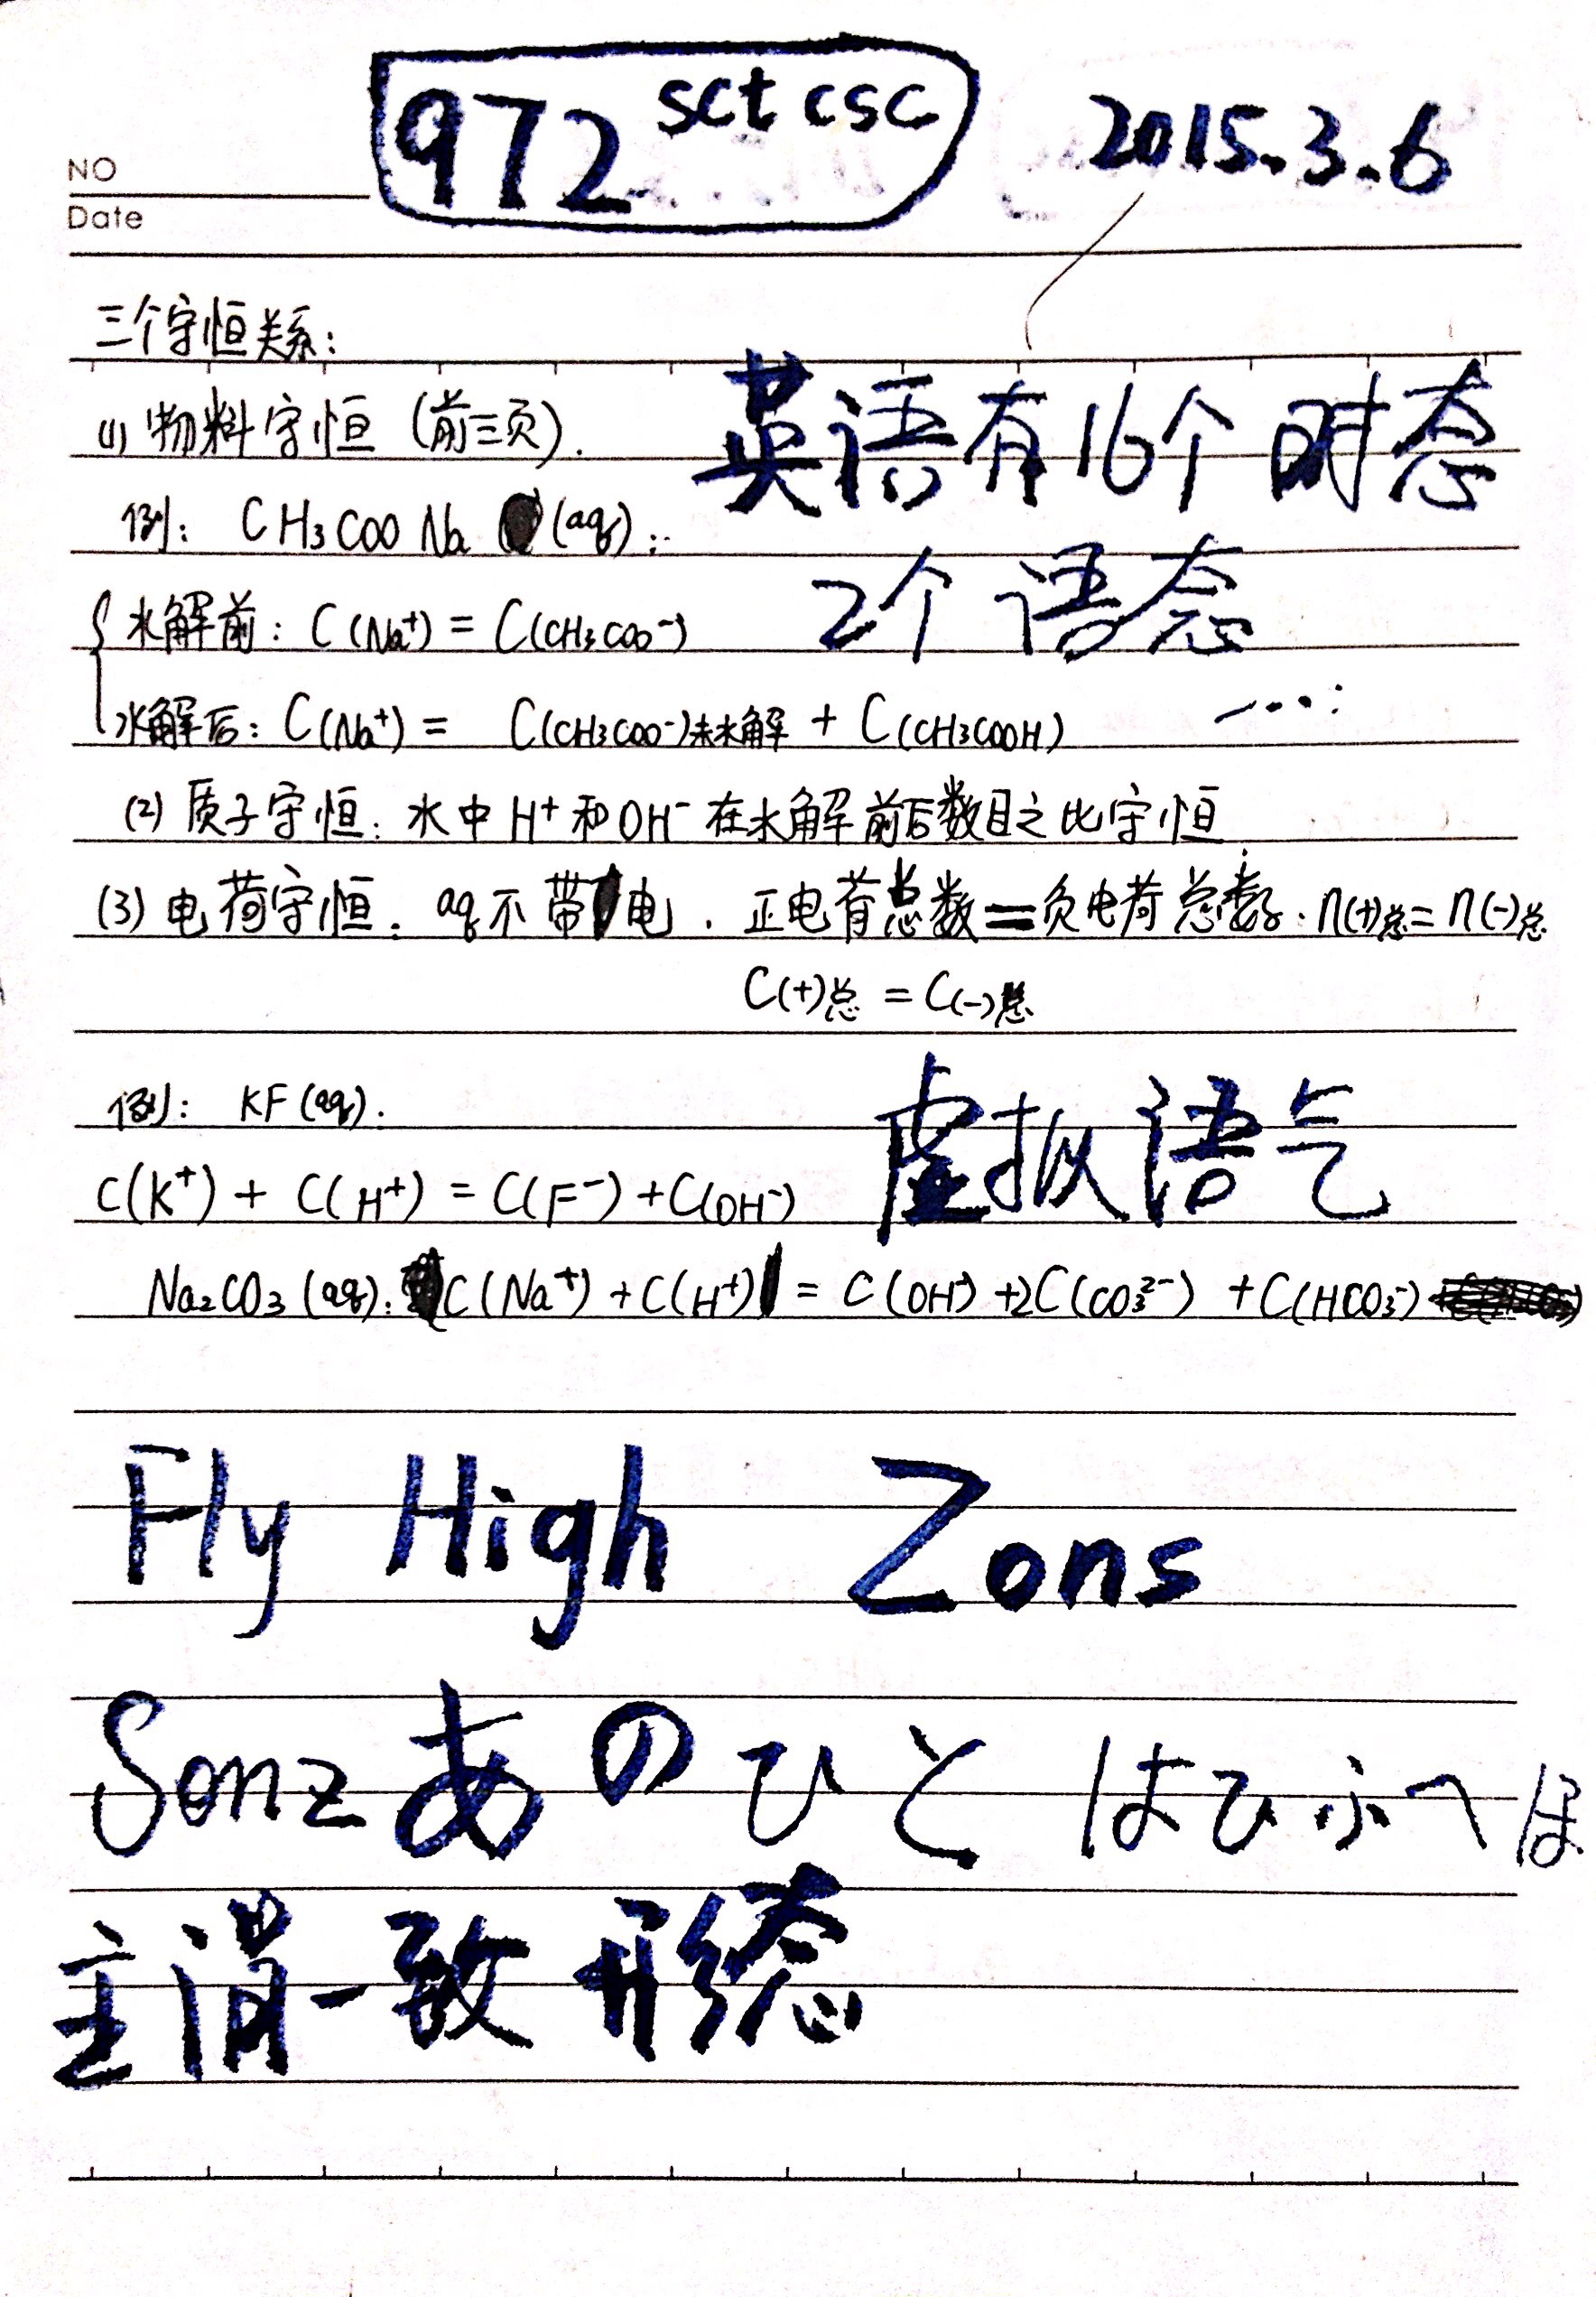 972 sct csc 2015.3.6
NO
Date
三个守恒关系:
(1) 物料守恒 (前三页). 英语有16个时态
例: CH₃COONa (aq):
2个语态
水解前: C(Na⁺) = C(CH₃COO⁻)
水解后: C(Na⁺) = C(CH₃COO⁻)未水解 + C(CH₃COOH) ······
(2) 质子守恒: 水中H⁺和OH⁻在水解前后数目之比守恒
(3) 电荷守恒: aq不带电. 正电荷总数=负电荷总数: n(+)总=n(-)总
C(+)总 = C(-)总
例: KF(aq): 虚拟语气
C(K⁺) + C(H⁺) = C(F⁻) + C(OH⁻)
Na₂CO₃(aq): C(Na⁺) + C(H⁺) = C(OH⁻) + 2C(CO₃²⁻) + C(HCO₃⁻)
Fly High Zons
Sonz あのひと はひふへほ
主谓一致 形态